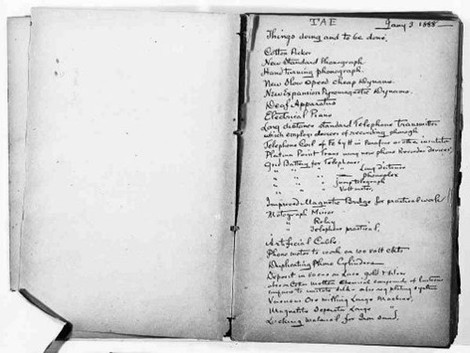 TAE Jany 3 1888
Things doing and to be done.
Cotton Picker
New Standard Phonograph.
Hand turning phonograph.
New Slow speed cheap Dynamo.
New Expansion Pyromagnetic Dynamo.
Deaf Apparatus
Electrical Piano
Long distance standard Telephone transmitter
which employs devices of recording phonogh
Telephone Coil of Fe by tt in Parafine or other insulator
Platina Point Trans using new phono Recorder devices
Grid Battery for Telephones
" " " " Long distance
" " " " Phonoplex
" " " " Jump Telegraph
" " " " Voltmeter
Improved Magnetic Bridge for practical work
Motograph Mirror
" Relay
" Telephone practical
Artificial Cable
Phone motor to work on 100 volt ckts
Duplicating Phono Cylinders
Deposit in vacuo on Lace gold & silver
also on Cotton molten chemical compound of lustrous
surface to imitate silk also reg plating system
Vacuous Ore milling Large Machine
Magnetic Separator Large
Locking material for Iron sand